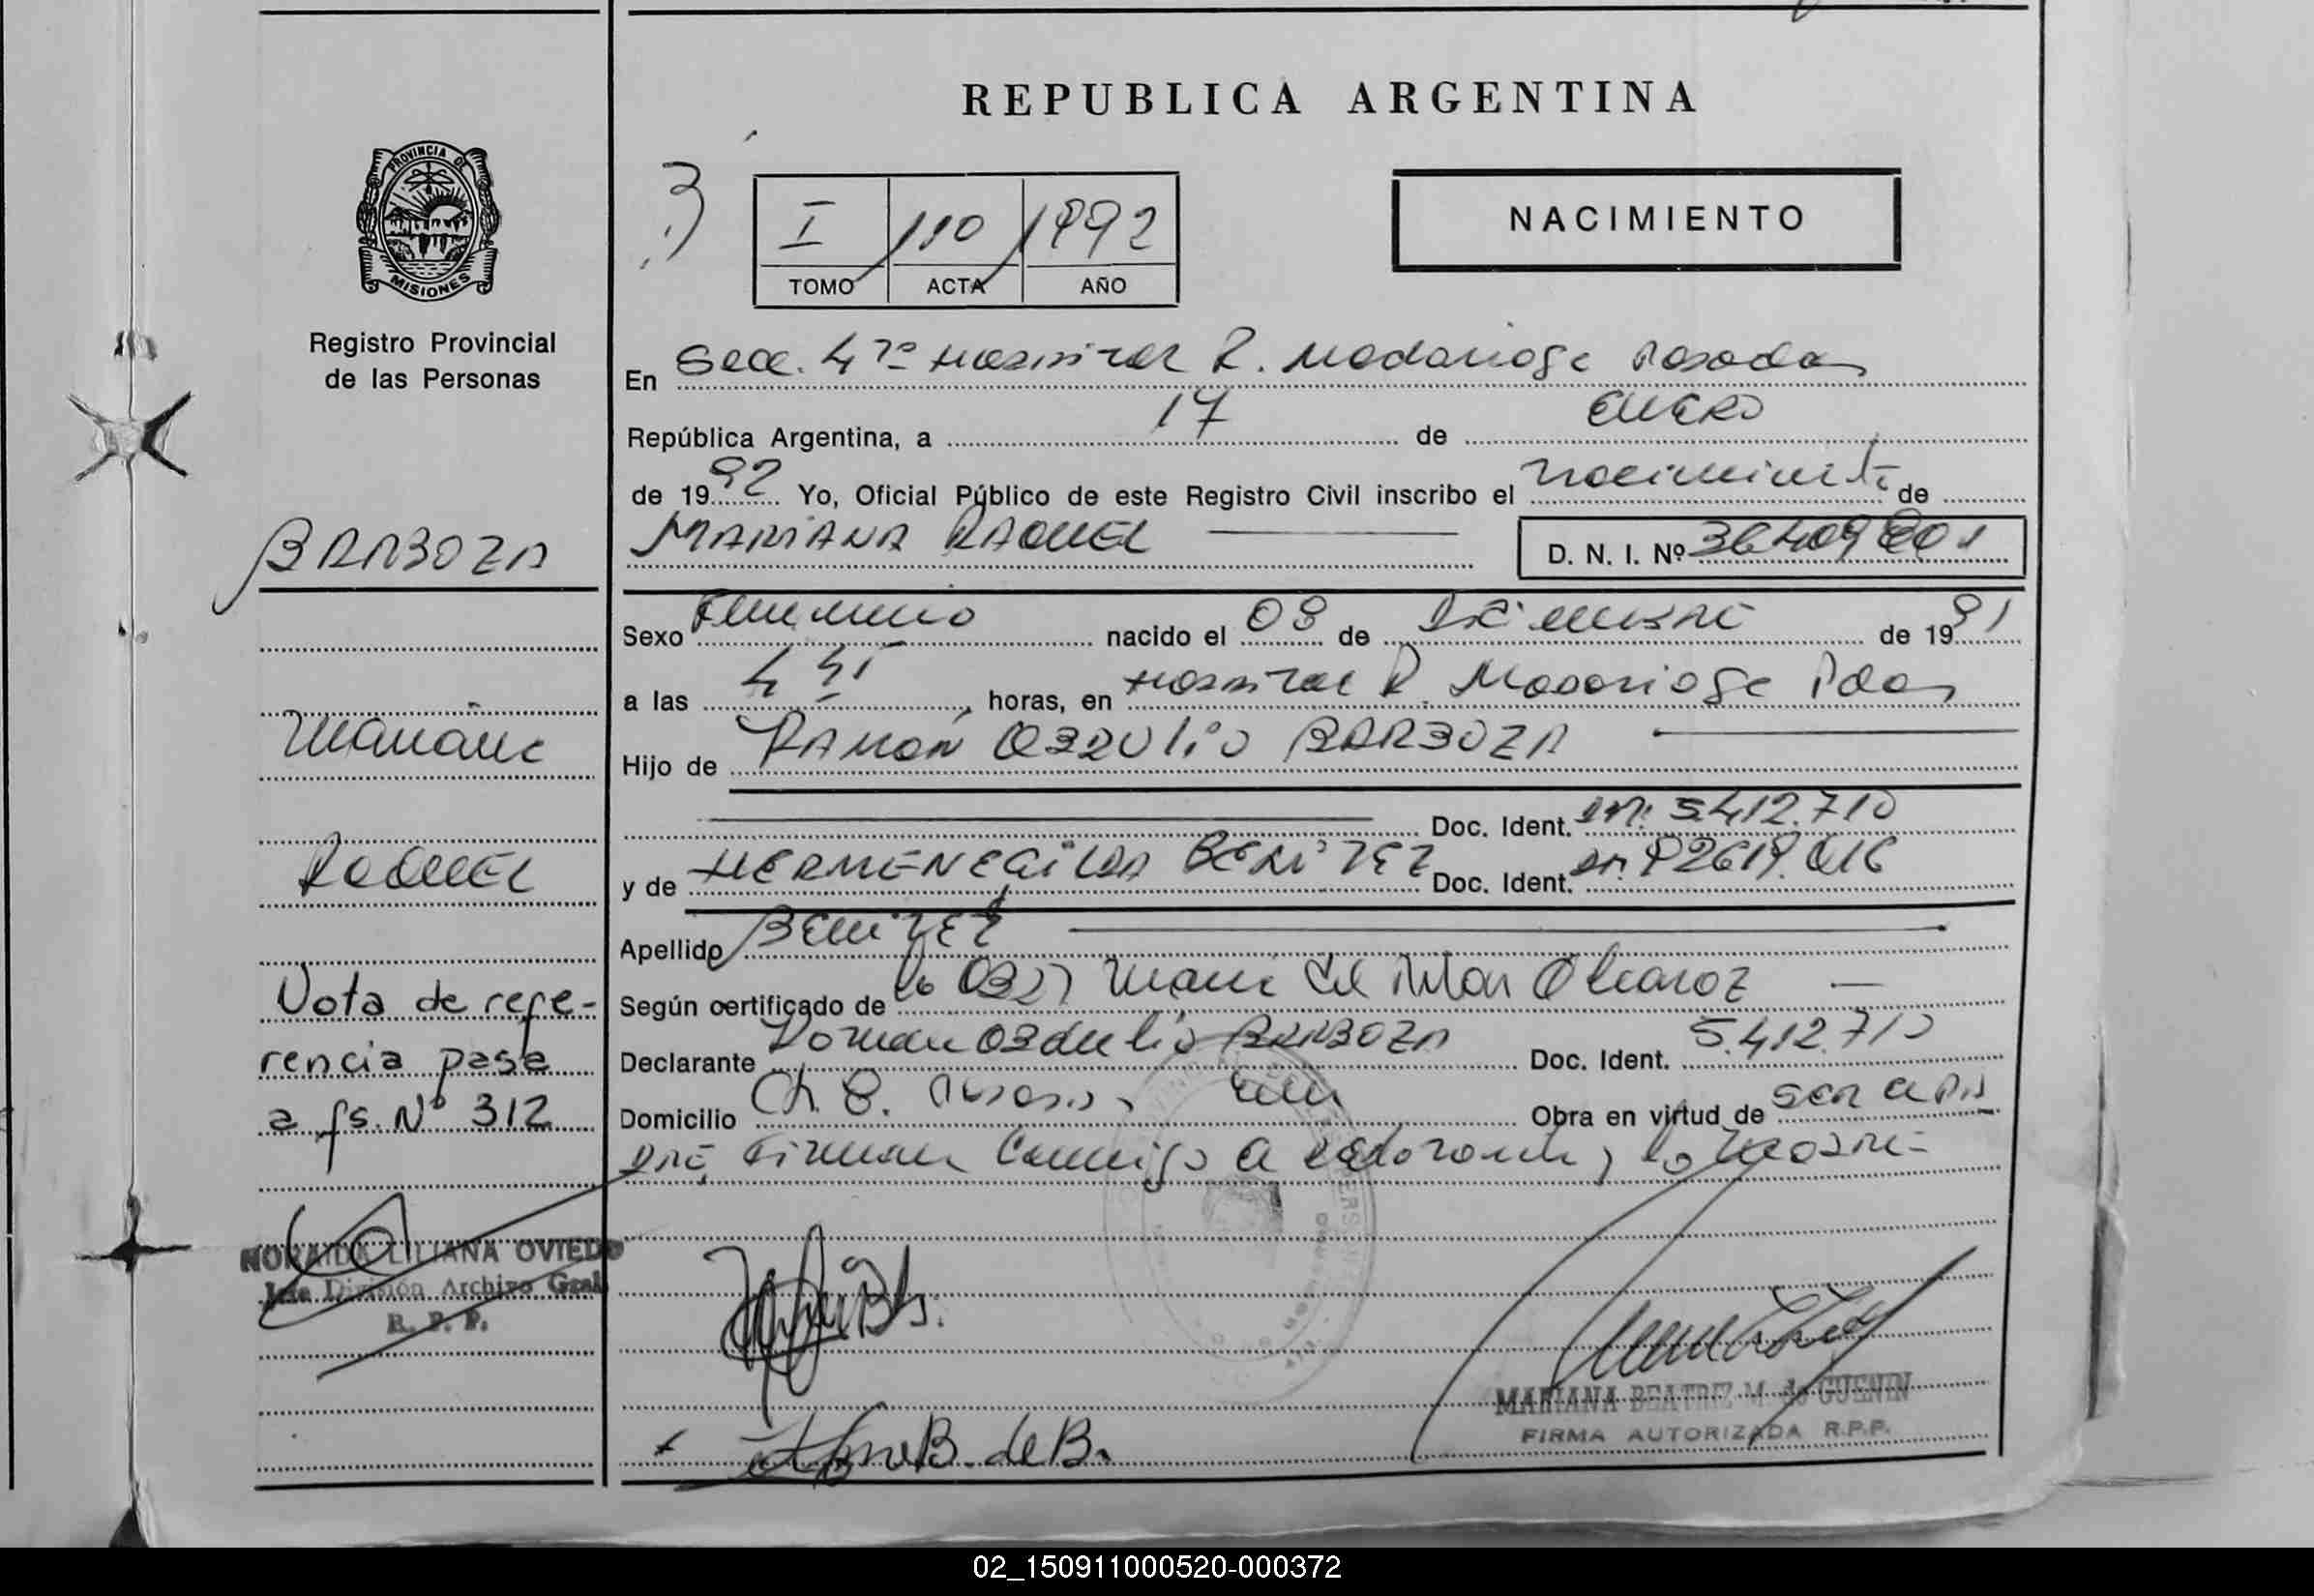 REPUBLICA ARGENTINA
PROVINCIA DE
MISIONES
Registro Provincial
de las Personas
3)
I 110 1992
TOMO ACTA AÑO
NACIMIENTO
En Secc. 4ta Hospital R. Madariaga Posadas
República Argentina, a 17 de ENERO
de 1992 Yo, Oficial Público de este Registro Civil inscribo el nacimiento de
BARBOZA
MARIANA RAQUEL
D. N. I. Nº
Sexo Femenino nacido el de DICIEMBRE de 1991
a las horas, en Hospital R. Madariaga Pdas
Mariana
Hijo de RAMON OBDULIO BARBOZA
Doc. Ident. 5.412.710
Raquel
y de HERMENEGILDA BENITEZ Doc. Ident.
Apellido BENITEZ
Según certificado de la Obst María del
Nota de refe-
rencia pasa
a fs. Nº 312
Declarante Roman Obdulio BARBOZA Doc. Ident. 5.412.710
Domicilio Ch. Obra en virtud de ser el PA
DRE, Firman Conmigo el declarante y la MADRE-
NORAIDA LILIANA OVIEDO
Jefe División Archivo Gral
R. P. P.
B. de B.
MARIANA BEATRIZ M. de GUENIN
FIRMA AUTORIZADA R.P.P.
02_150911000520-000372